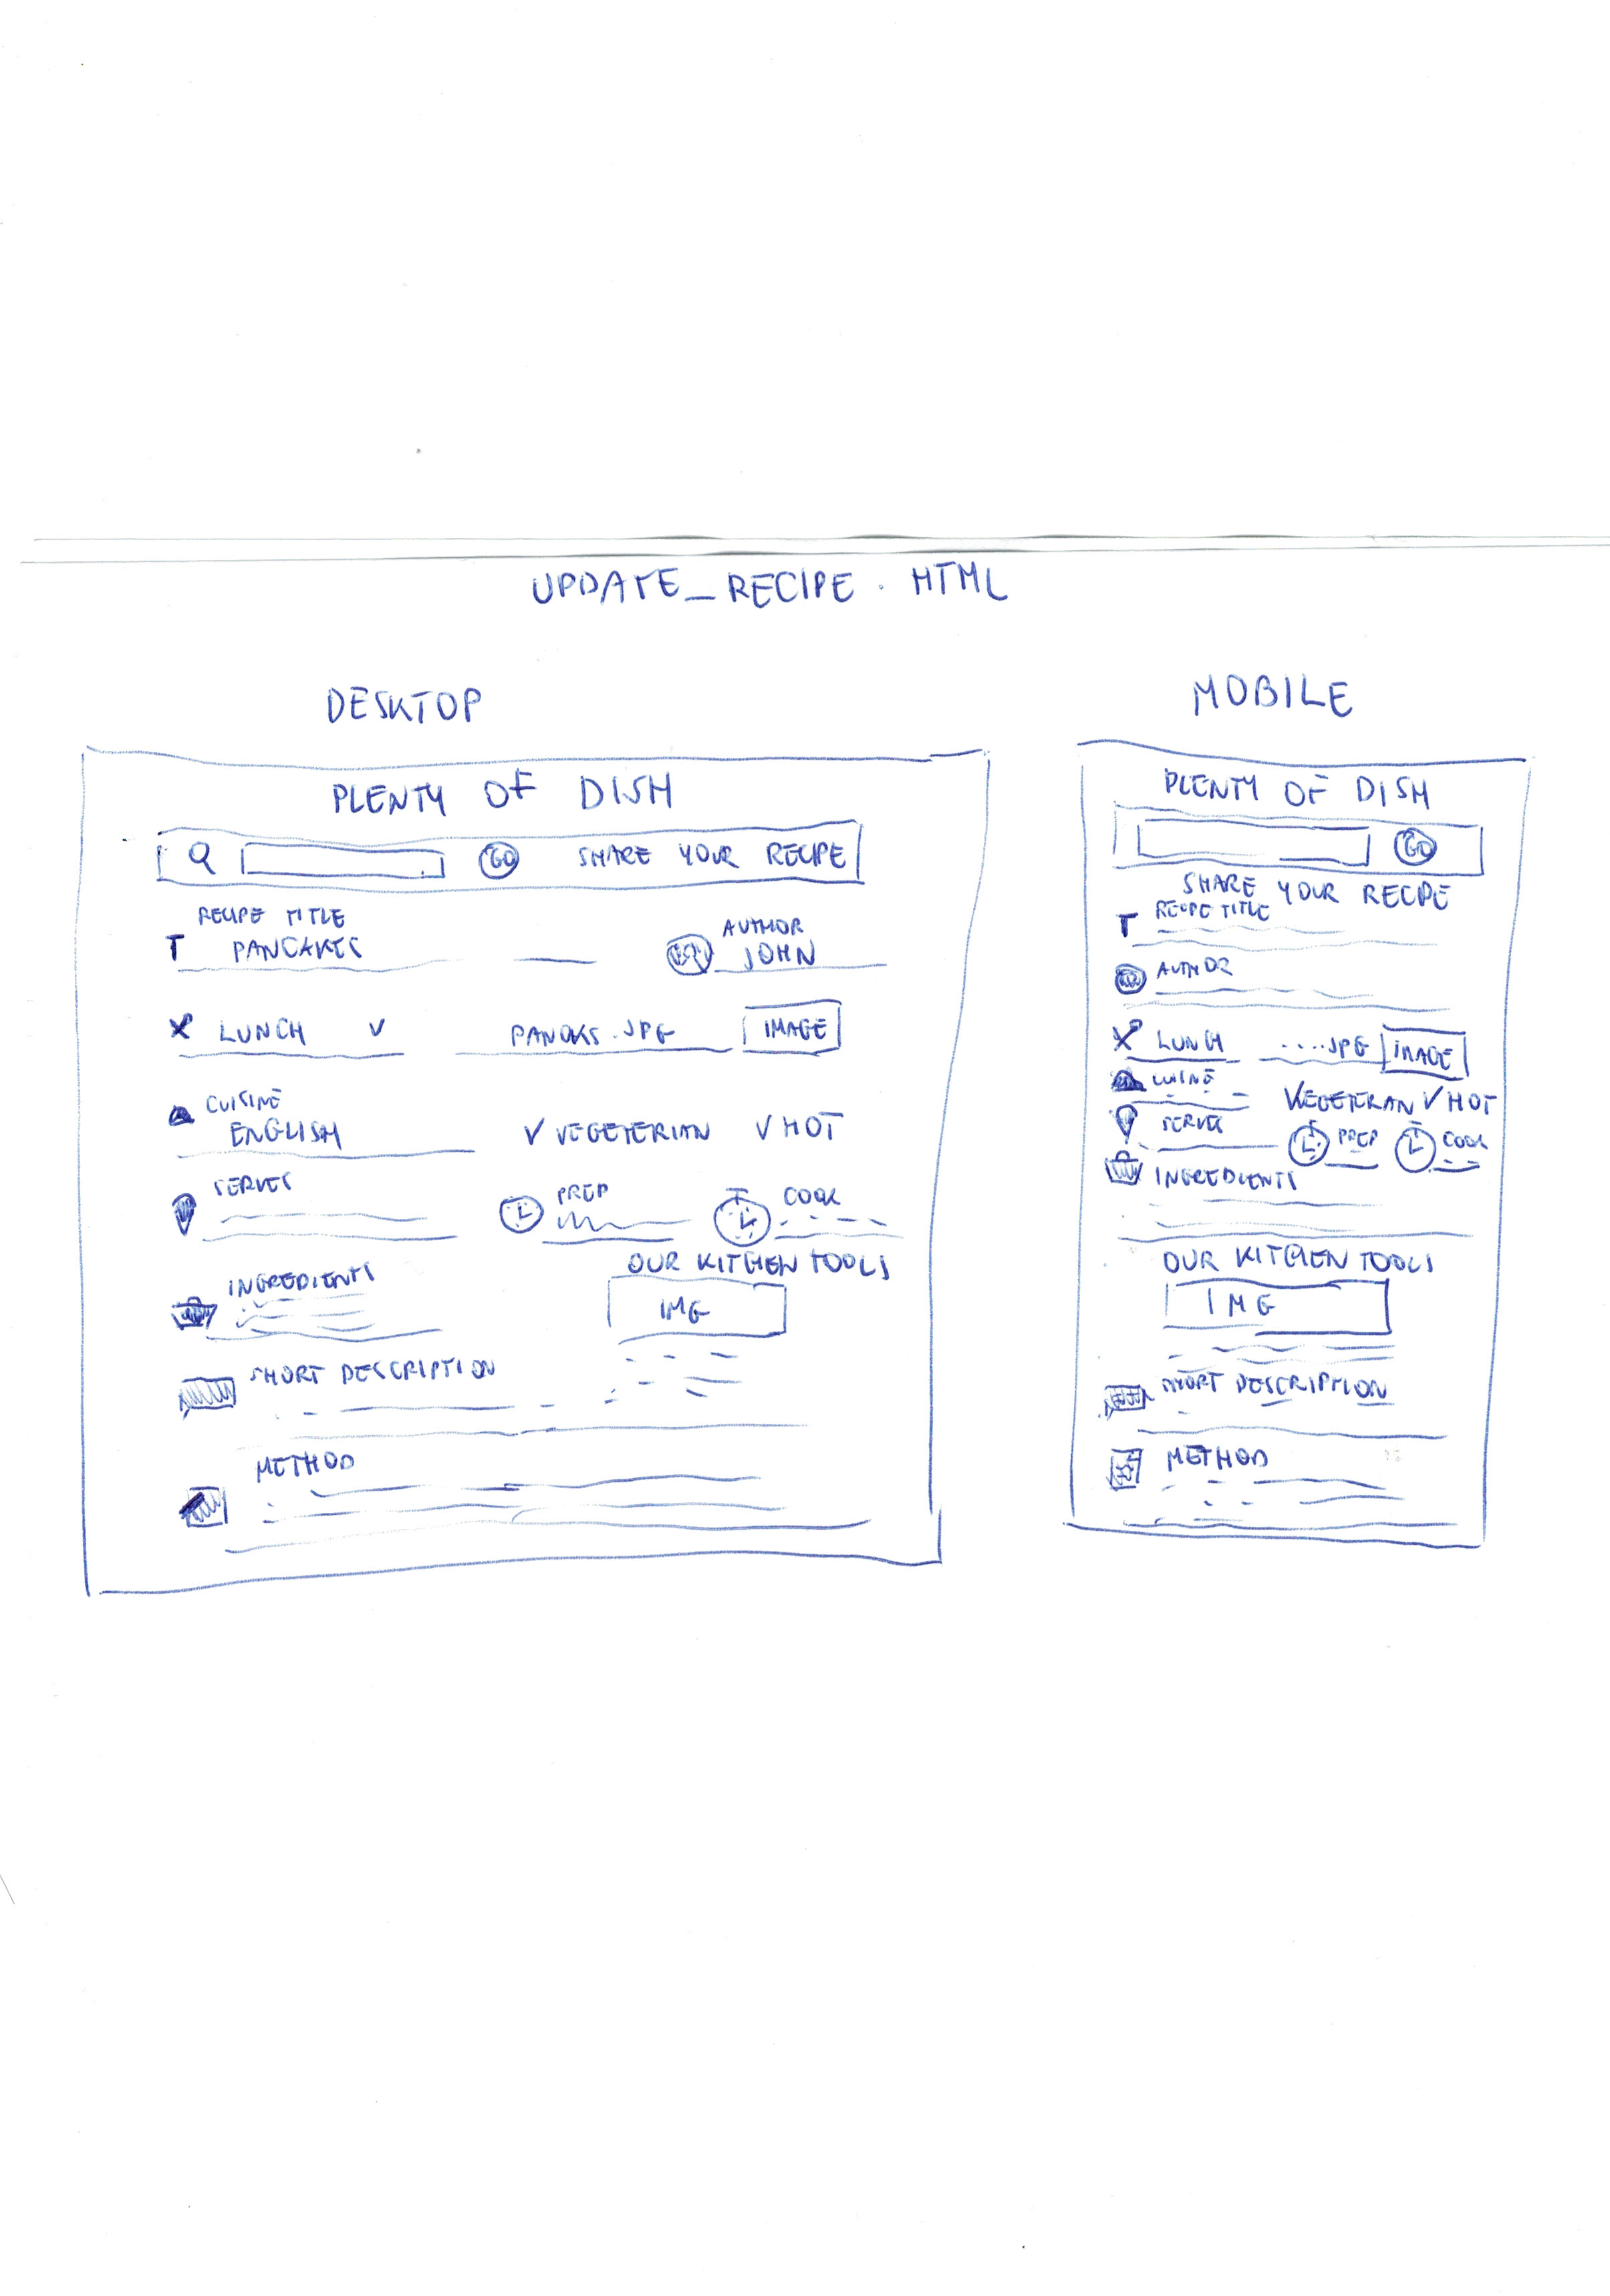 UPDATE_RECIPE.HTML
DESKTOP
PLENTY OF DISH
GO SHARE YOUR RECIPE
RECIPE TITLE
T PANCAKES
AUTHOR
JOHN
LUNCH V
PANCKS.JPG IMAGE
CUISINE
ENGLISH
V VEGETERIAN V HOT
SERVES
PREP
COOK
INGREDIENTS
OUR KITCHEN TOOLS
IMG
SHORT DESCRIPTION
METHOD
MOBILE
PLENTY OF DISH
GO
SHARE YOUR RECIPE
T RECIPE TITLE
AUTHOR
LUNCH ....JPG IMAGE
CUISINE
VEGETERAN V HOT
SERVES
PREP COOK
INGREDIENTS
OUR KITCHEN TOOLS
IMG
SHORT DESCRIPTION
METHOD